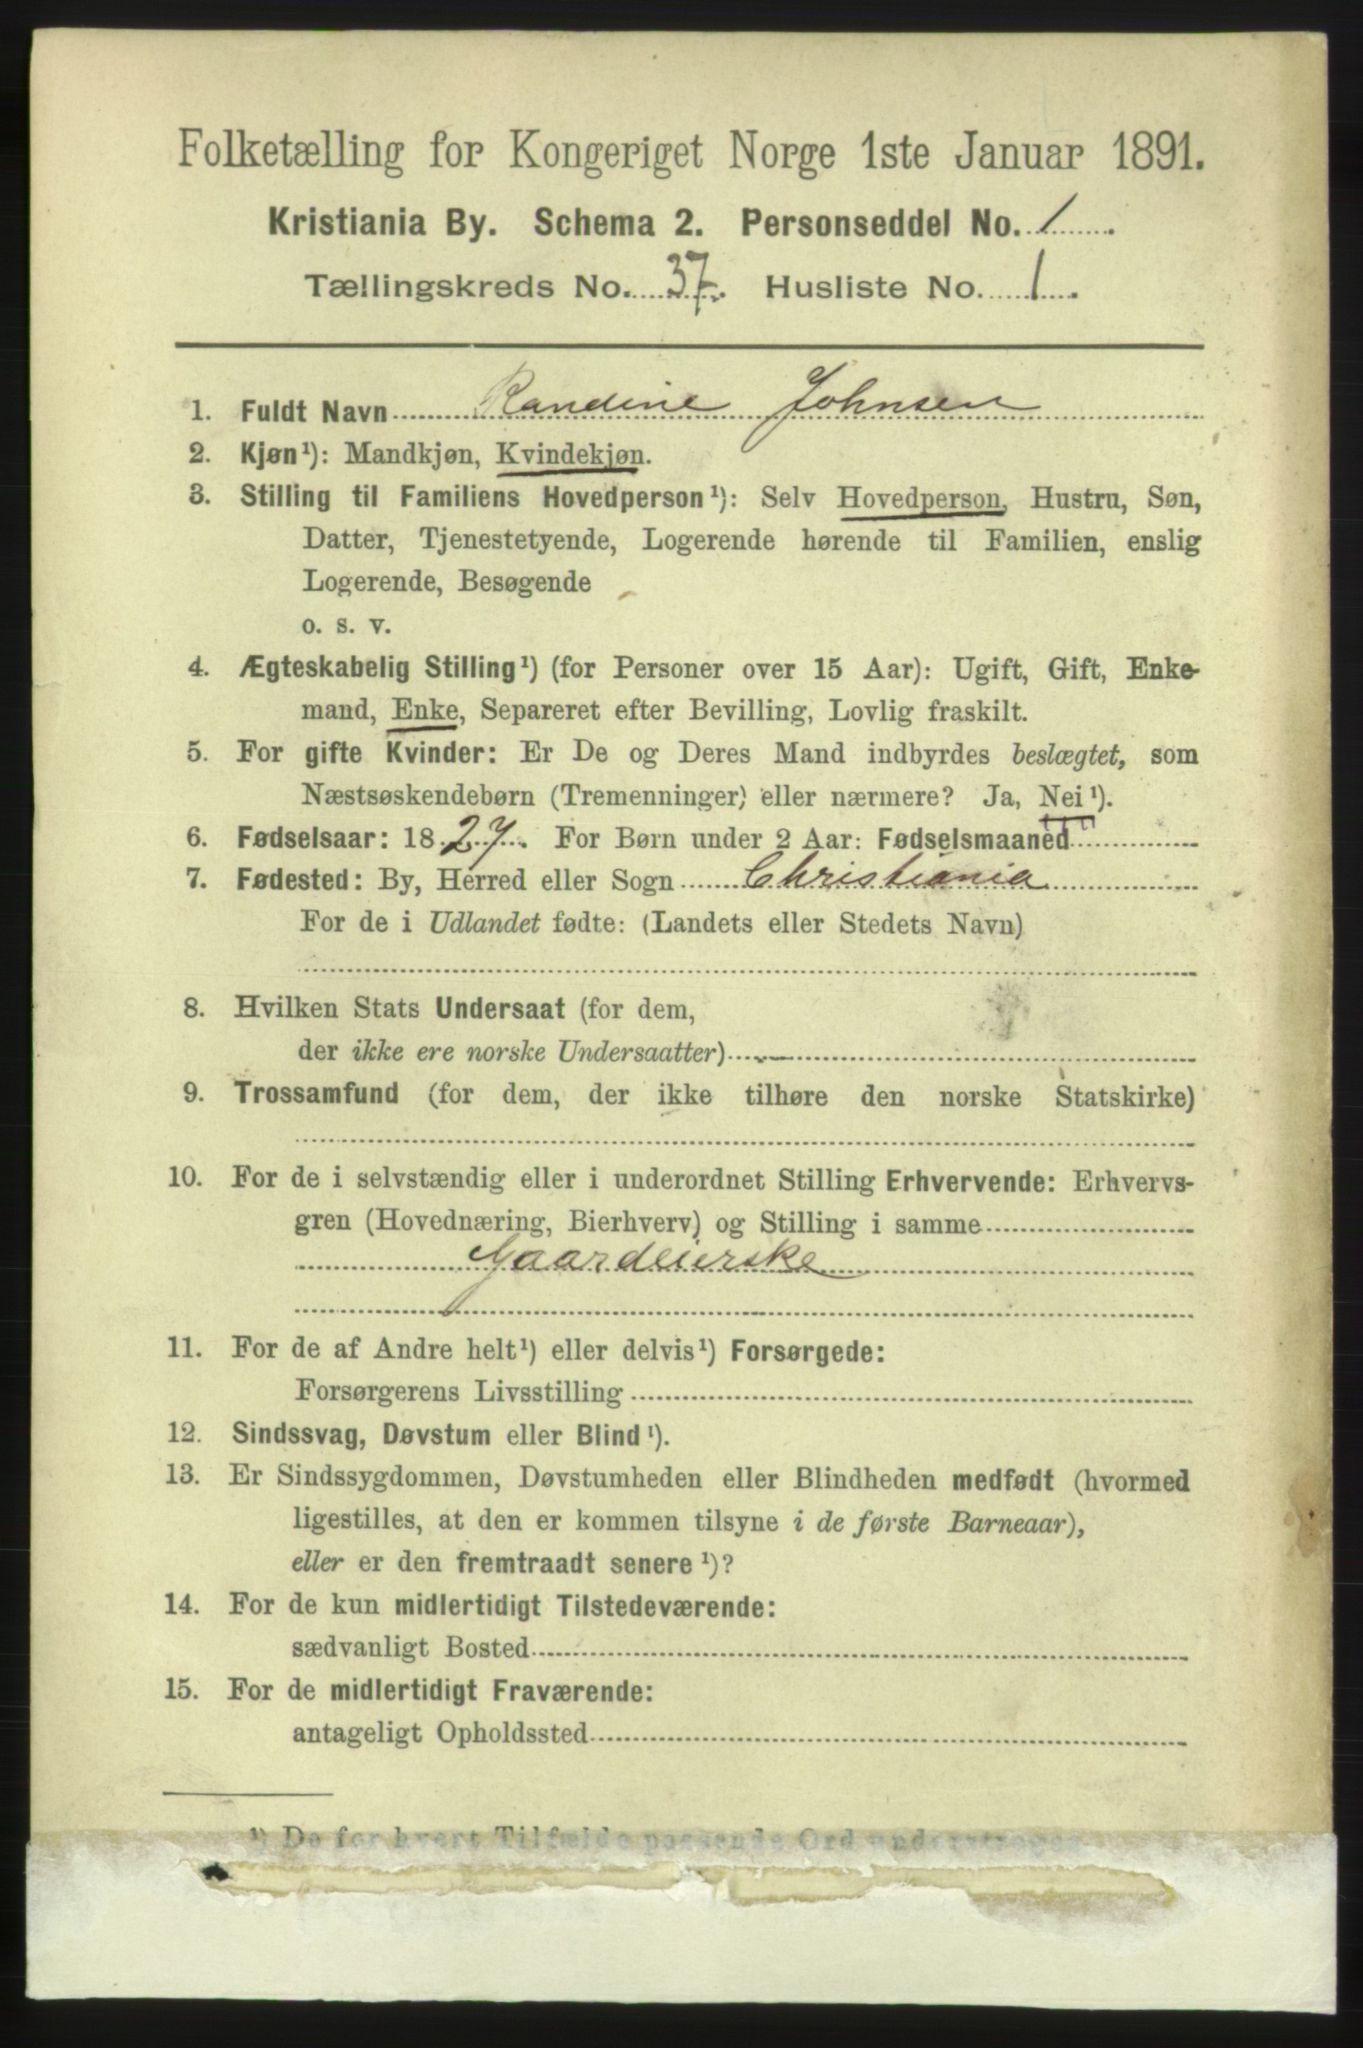 Folketælling for Kongeriget Norge 1ste Januar 1891.
Kristiania By. Schema 2. Personseddel No. 1.
Tællingskreds No. 37. Husliste No. 1.
1. Fuldt Navn Randine Johnsen
2. Kjøn¹): Mandkjøn, Kvindekjøn.
3. Stilling til Familiens Hovedperson¹): Selv Hovedperson, Hustru, Søn,
Datter, Tjenestetyende, Logerende hørende til Familien, enslig
Logerende, Besøgende
o. s. v.
4. Ægteskabelig Stilling¹) (for Personer over 15 Aar): Ugift, Gift, Enke-
mand, Enke, Separeret efter Bevilling, Lovlig fraskilt.
5. For gifte Kvinder: Er De og Deres Mand indbyrdes beslægtet, som
Næstsøskendebørn (Tremenninger) eller nærmere? Ja, Nei¹).
6. Fødselsaar: 1827. For Børn under 2 Aar: Fødselsmaaned
7. Fødested: By, Herred eller Sogn Christiania
For de i Udlandet fødte: (Landets eller Stedets Navn)
8. Hvilken Stats Undersaat (for dem,
der ikke ere norske Undersaatter)
9. Trossamfund (for dem, der ikke tilhøre den norske Statskirke)
10. For de i selvstændig eller i underordnet Stilling Erhvervende: Erhvervs-
gren (Hovednæring, Bierhverv) og Stilling i samme
Gaardeierske
11. For de af Andre helt¹) eller delvis¹) Forsørgede:
Forsørgerens Livsstilling
12. Sindssvag, Døvstum eller Blind¹).
13. Er Sindssygdommen, Døvstumheden eller Blindheden medfødt (hvormed
ligestilles, at den er kommen tilsyne i de første Barneaar),
eller er den fremtraadt senere¹)?
14. For de kun midlertidigt Tilstedeværende:
sædvanligt Bosted
15. For de midlertidigt Fraværende:
antageligt Opholdssted
¹) De for hvert Tilfælde passende Ord understreges